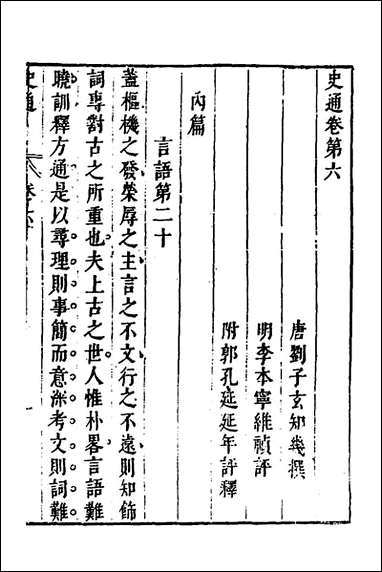 史通卷第六
唐劉子玄知幾撰
明李本寧維禎評
附郭孔延延年評釋
內篇
言語第二十
蓋樞機之發榮辱之主言之不文行之不遠則知飾
詞專對古之所重也夫上古之世人惟朴畧言語難
曉訓釋方通是以尋理則事簡而意深考文則詞難
史通
卷六